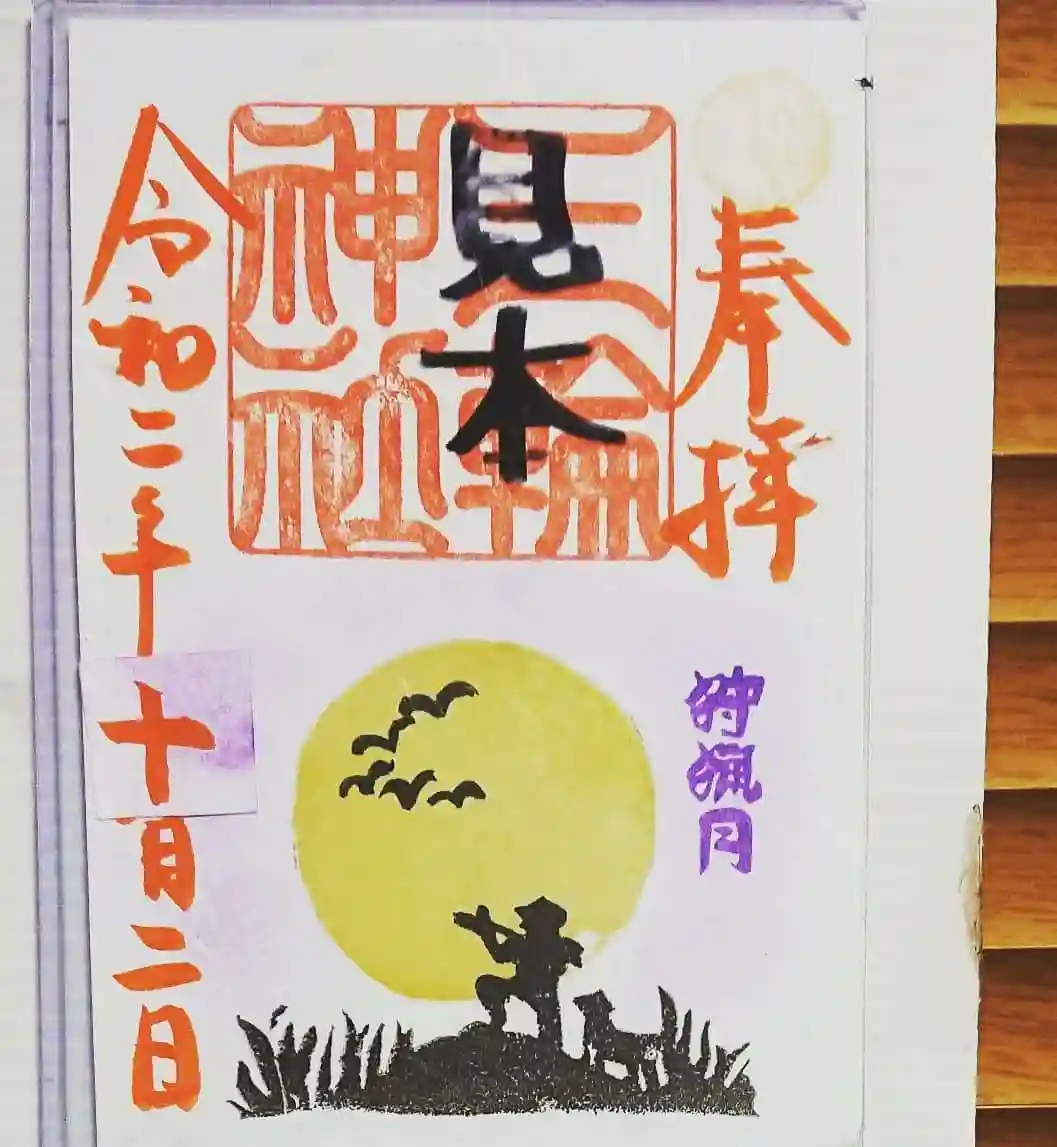 奉拝
三輪
神社
見本
狩猟月
令和二年十月二日